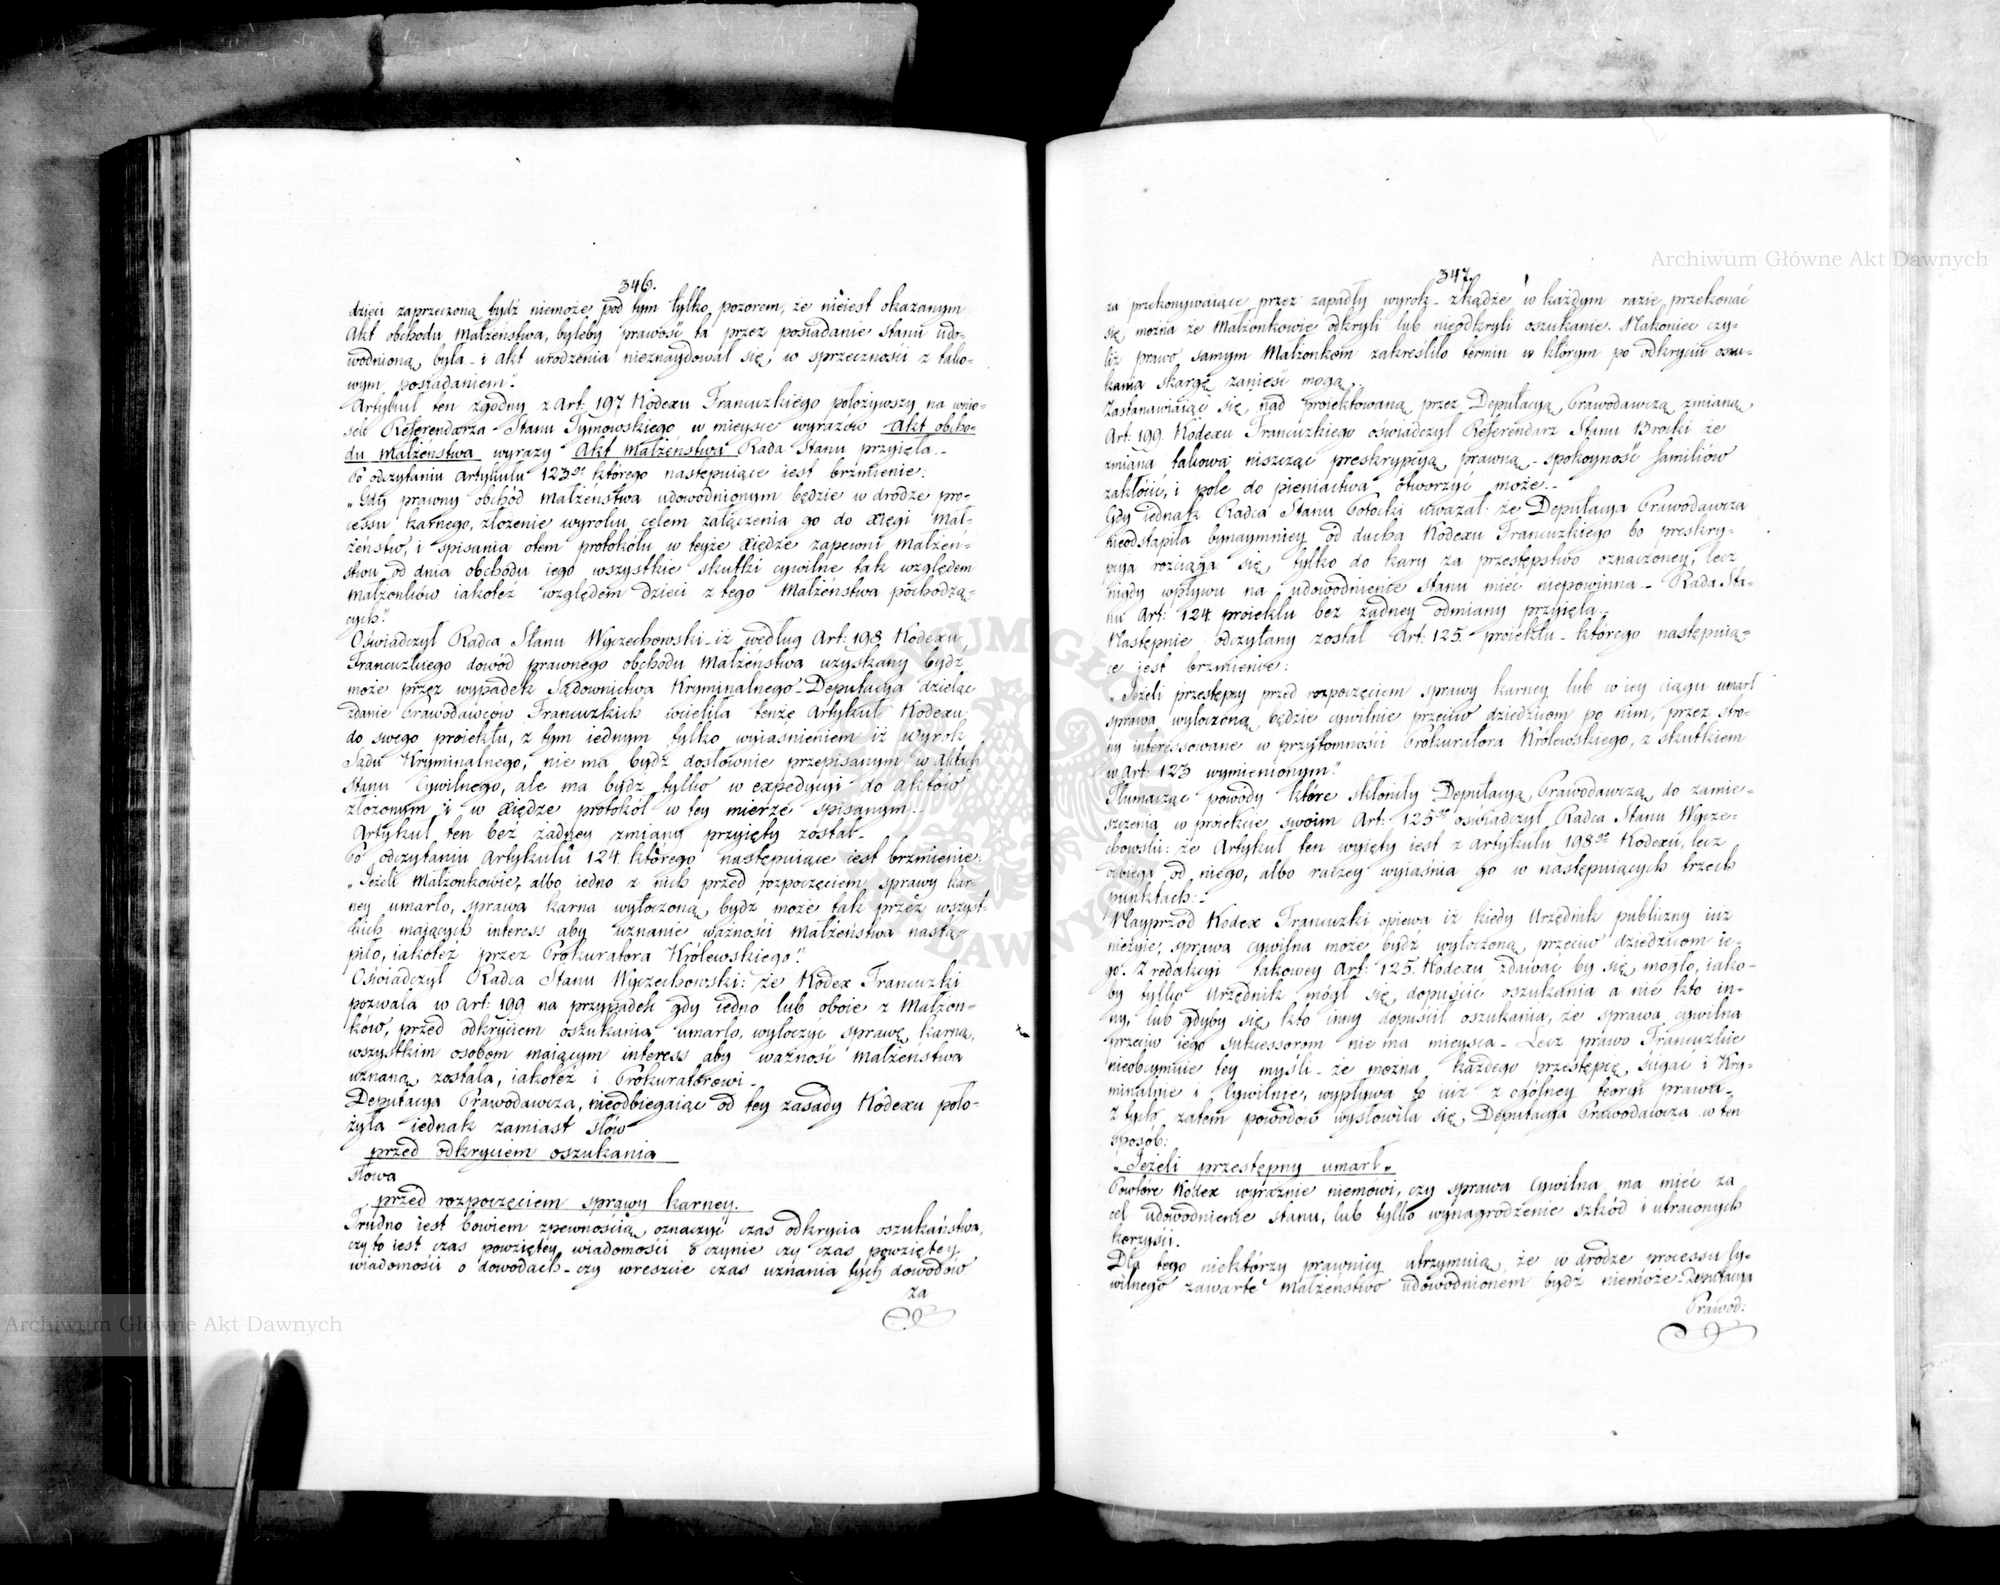 346.
dzieci zaprzeczoną bydź niemoże pod tym tylko pozorem, że nieiest okazanym
Akt obchodu Małżeństwa, byleby prawość ta przez posiadanie Stanu udo-
wodnioną była - i Akt urodzenia nieznaydował się, w sprzeczności z tako-
wym posiadaniem".
Artykuł ten zgodny z Art: 197 Kodexu Francuzkiego położywszy na wnio-
sek Referendarza Stanu Tymowskiego w mieysce wyrazów Akt obcho-
du Małżeństwa wyrazy Akt Małżeństwa Rada Stanu przyięła.-
Po odczytaniu Artykułu 123go którego następuiące iest brzmienie:
„Gdy prawny obchód Małżeństwa udowodnionym będzie w drodze pro-
cessu karnego, złożenie wyroku celem załączenia go do Xięgi Mał-
żeństw, i spisania otem protokółu w teyże Xiędze zapewni Małżeń-
stwu od dnia obchodu iego wszystkie skutki cywilne tak względem
Małżonków iakoteż względem dzieci z tego Małżeństwa pochodzą-
cych".
Oświadczył Radca Stanu Wyczechowski - iż według Art: 198 Kodexu
Francuzkiego dowód prawnego obchodu Małżeństwa uzyskany bydź
może przez wypadek Sądownictwa Kryminalnego - Deputacya dzieląc
zdanie Prawodawców Francuzkich wcieliła tenże Artykuł Kodexu
do swego proiektu, z tym iednym tylko wyiaśnieniem iż wyrok
Sądu Kryminalnego, nie ma bydź dosłownie przepisanym w Aktach
Stanu Cywilnego, ale ma bydź tylko w expedycyi do Aktów
złożonym i w Xiędze protokół w tey mierze spisanym.-
Artykuł ten bez żadney zmiany przyięty został.-
Po odczytaniu Artykułu 124. którego następuiące iest brzmienie:
„Jeżeli Małżonkowie, albo iedno z nich przed rozpoczęciem sprawy kar-
ney umarło, sprawa karna wytoczoną bydź może tak przez wszyst-
kich maiących interess aby uznanie ważności Małżeństwa nastą-
piło, iakoteż przez Prokuratora Królewskiego".
Oświadczył Radca Stanu Wyczechowski: że Kodex Francuzki
pozwala w Art: 199 na przypadek gdy iedno lub oboie z Małżon-
ków, przed odkryciem oszukania umarło, wytoczyć sprawę karną,
wszystkim osobom maiącym interess aby ważność Małżeństwa
uznaną została, iakoteż i Prokuratorowi -
Deputacya Prawodawcza, nieodbiegaiąc od tey zasady Kodexu poło-
żyła iednak zamiast słów
przed odkryciem oszukania
słowa
przed rozpoczęciem sprawy karney.
Trudno iest bowiem zpewnością oznaczyć czas odkrycia oszukaństwa,
czy to iest czas powziętey wiadomości o czynie czy czas powziętey
wiadomości o dowodach - czy wreszcie czas uznania tych dowodów
za
347.
za przekonywaiące przez zapadły wyrok - zkądże w każdym razie przekonać
się można że Małżonkowie odkryli lub nieodkryli oszukanie. Nakoniec czy-
liż prawo samym Małżonkom zakreśliło termin w którym po odkryciu oszu-
kania skargę zanieść mogą.
Zastanawiaiąc się nad proiektowaną przez Deputacyą Prawodawczą zmianą
Art: 199. Kodexu Francuzkiego oświadczył Referendarz Stanu Brocki że
zmiana takowa niszcząc preskrypcyą prawną - spokoyność familiów
zakłócić, i pole do pieniactwa otworzyć może.-
Gdy iednak Radca Stanu Potocki uważał: że Deputacya Prawodawcza
nieodstąpiła bynaymniey od ducha Kodexu Francuzkiego bo preskry-
pcya rozciąga się tylko do kary za przestępstwo oznaczoney, lecz
nigdy wpływu na udowodnienie Stanu mieć niepowinna - Rada Sta-
nu Art: 124. proiektu bez żadney odmiany przyięła.
Następnie odczytany został Art: 125. proiektu - którego następuią-
ce jest brzmienie:
„Jeżeli przestępny przed rozpoczęciem sprawy karney lub w iey ciągu umarł
sprawa wytoczoną będzie cywilnie przeciw dziedzicom po nim, przez stro-
ny interessowane w przytomności Prokuratora Królewskiego, z skutkiem
w Art: 123 wymienionym".
Tłumacząc powody które skłoniły Deputacyą Prawodawczą do zamie-
szczenia w proiekcie swoim Art: 125go oświadczył Radca Stanu Wycze-
chowski: że Artykuł ten wyięty iest z Artykułu 198go Kodexu, lecz
odbiega od niego, albo raczey wyiaśnia go w następuiących trzech
punktach:
Nayprzód Kodex Francuzki opiewa iż kiedy Urzędnik publiczny iuż
nieżyie, sprawa cywilna może bydź wytoczoną przeciw dziedzicom ie-
go. Z redakcyi takowey Art: 125. Kodexu zdawać by się mogło, iako-
by tylko Urzędnik mógł się dopuścić oszukania a nie kto in-
ny, lub gdyby się kto inny dopuścił oszukania, że sprawa cywilna
przeciw iego sukcessorom nie ma mieysca - Lecz prawo Francuzkie
nieobeymuie tey myśli - że można każdego przestępcę, ścigać i Kry-
minalnie i Cywilnie, wypływa to iuż z ogólney teoryi prawa.
Z tych zatem powodów wysłowiła się Deputacya Prawodawcza w ten
sposób:
„Jeżeli przestępny umarł"
Powtóre Kodex wyraźnie niemówi, czy sprawa Cywilna ma mieć za
cel udowodnienie Stanu, lub tylko wynagrodzenie szkód i utraconych
korzyści.
Dla tego niektórzy prawnicy utrzymuią, że w drodze processu Cy-
wilnego zawarte Małżeństwo udowodnionem bydź niemoże - Deputacya
Prawod:
Archiwum Główne Akt Dawnych
Archiwum Główne Akt Dawnych